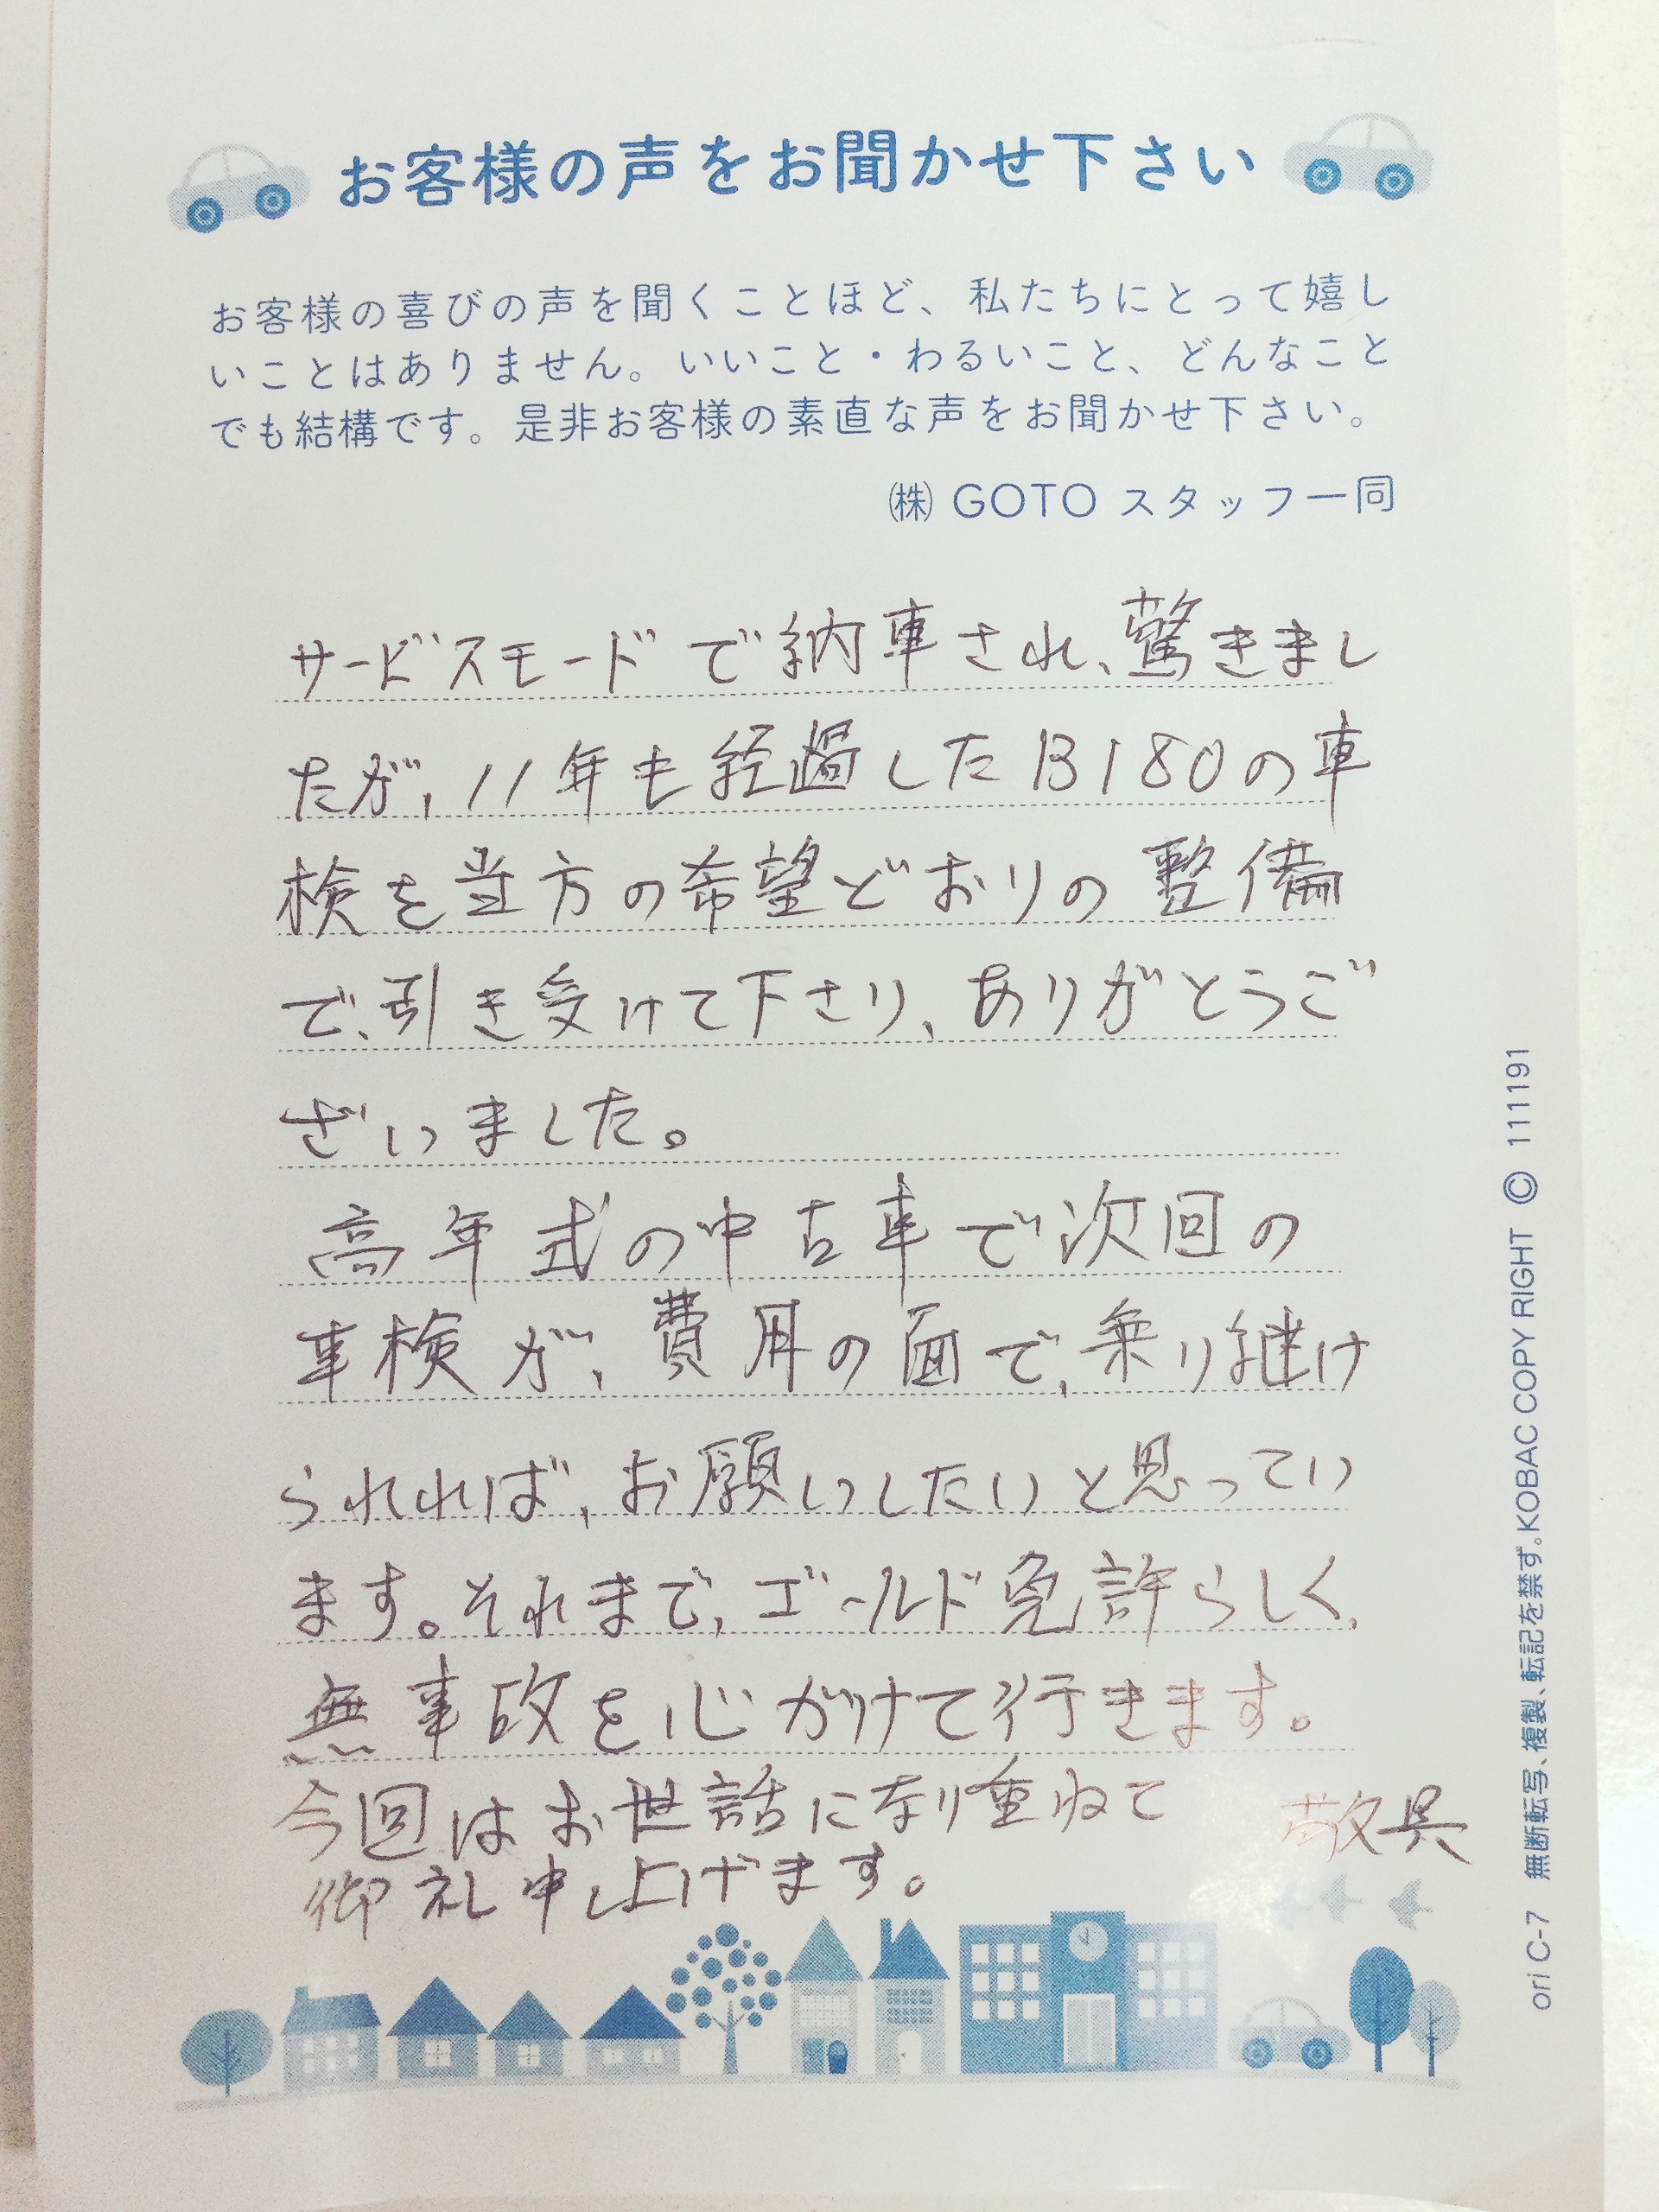 お客様の声をお聞かせ下さい
お客様の喜びの声を聞くことほど、私たちにとって嬉し
いことはありません。いいこと・わるいこと、どんなこと
でも結構です。是非お客様の素直な声をお聞かせ下さい。
㈱ GOTO スタッフ一同
サービスモードで納車され、驚きまし
たが、11年も経過したB180の車
検を当方の希望どおりの整備
で、引き受けて下さり、ありがとうご
ざいました。
高年式の中古車で次回の
車検が、費用の面で、乗り継け
られれば、お願いしたいと思ってい
ます。それまで、ゴールド免許らしく、
無事故を心がけて行きます。
今回はお世話になり重ねて
御礼申し上げます。
敬具
ori C-7 無断転写、複製、転記を禁ず。KOBAC COPY RIGHT © 111191